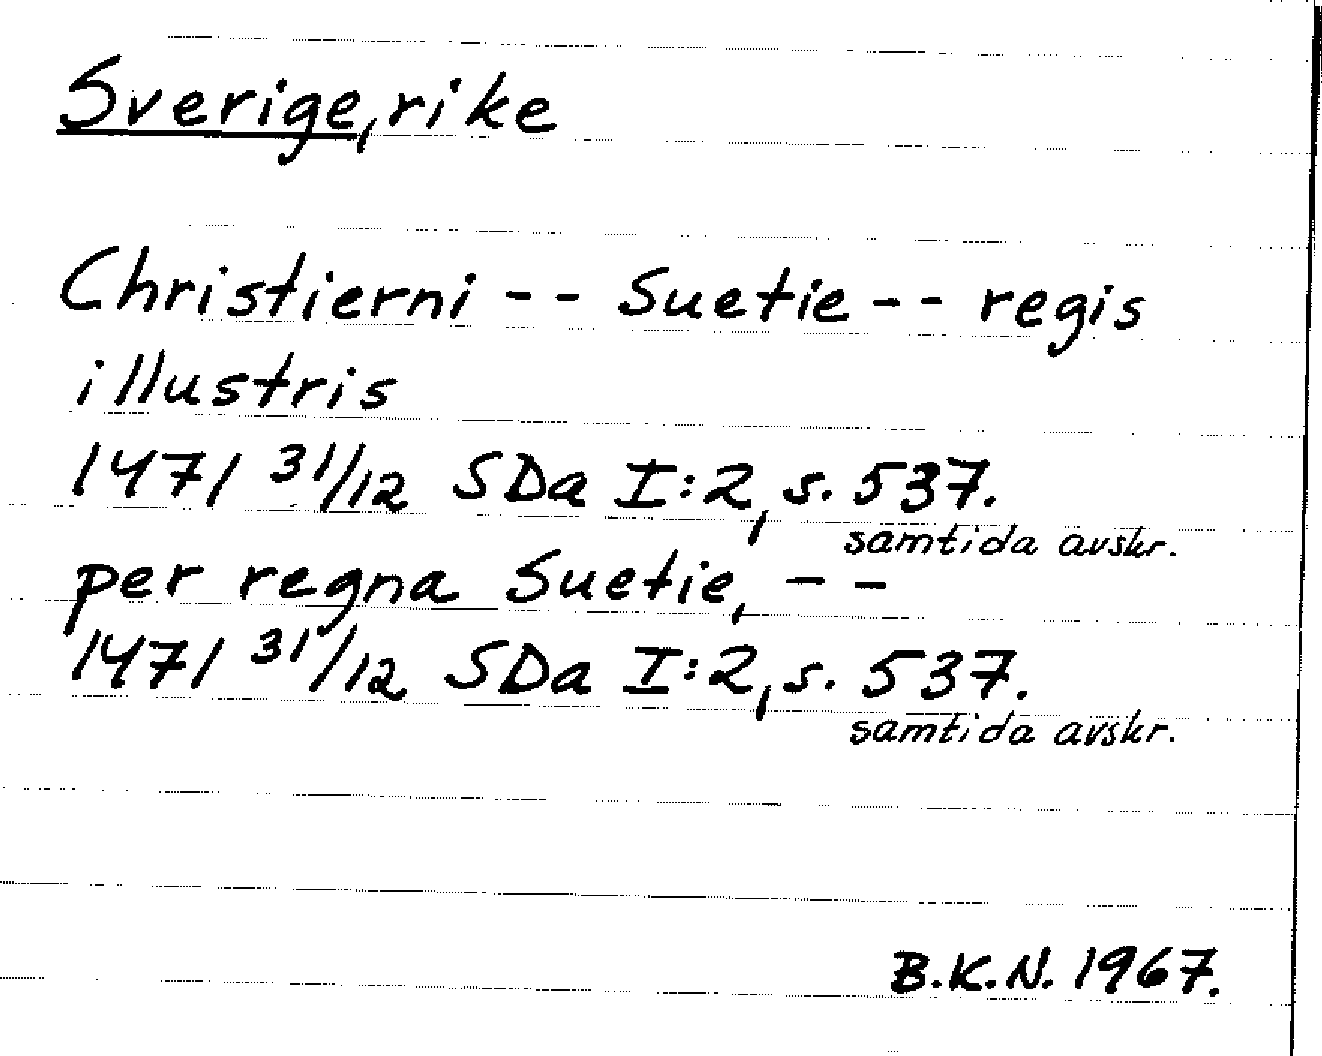 Sverige, rike
Christierni -- Suetie -- regis
illustris
1471 31/12 SDa I:2, s. 537.
samtida avskr.
per regna Suetie, --
1471 31/12 SDa I:2, s. 537.
samtida avskr.
B.K.N. 1967.